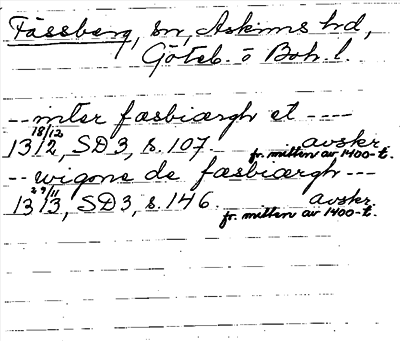 Fässberg, sn, Askims hd,
Göteb. o Boh. l.
-- inter fæsbiærgh et ----
13 18/12 12, SD 3, s. 107. avskr.
fr. mitten av 1400-t.
-- wigone de fæsbiærgh ---
13 29/11 13, SD 3, s. 146. avskr.
fr. mitten av 1400-t.